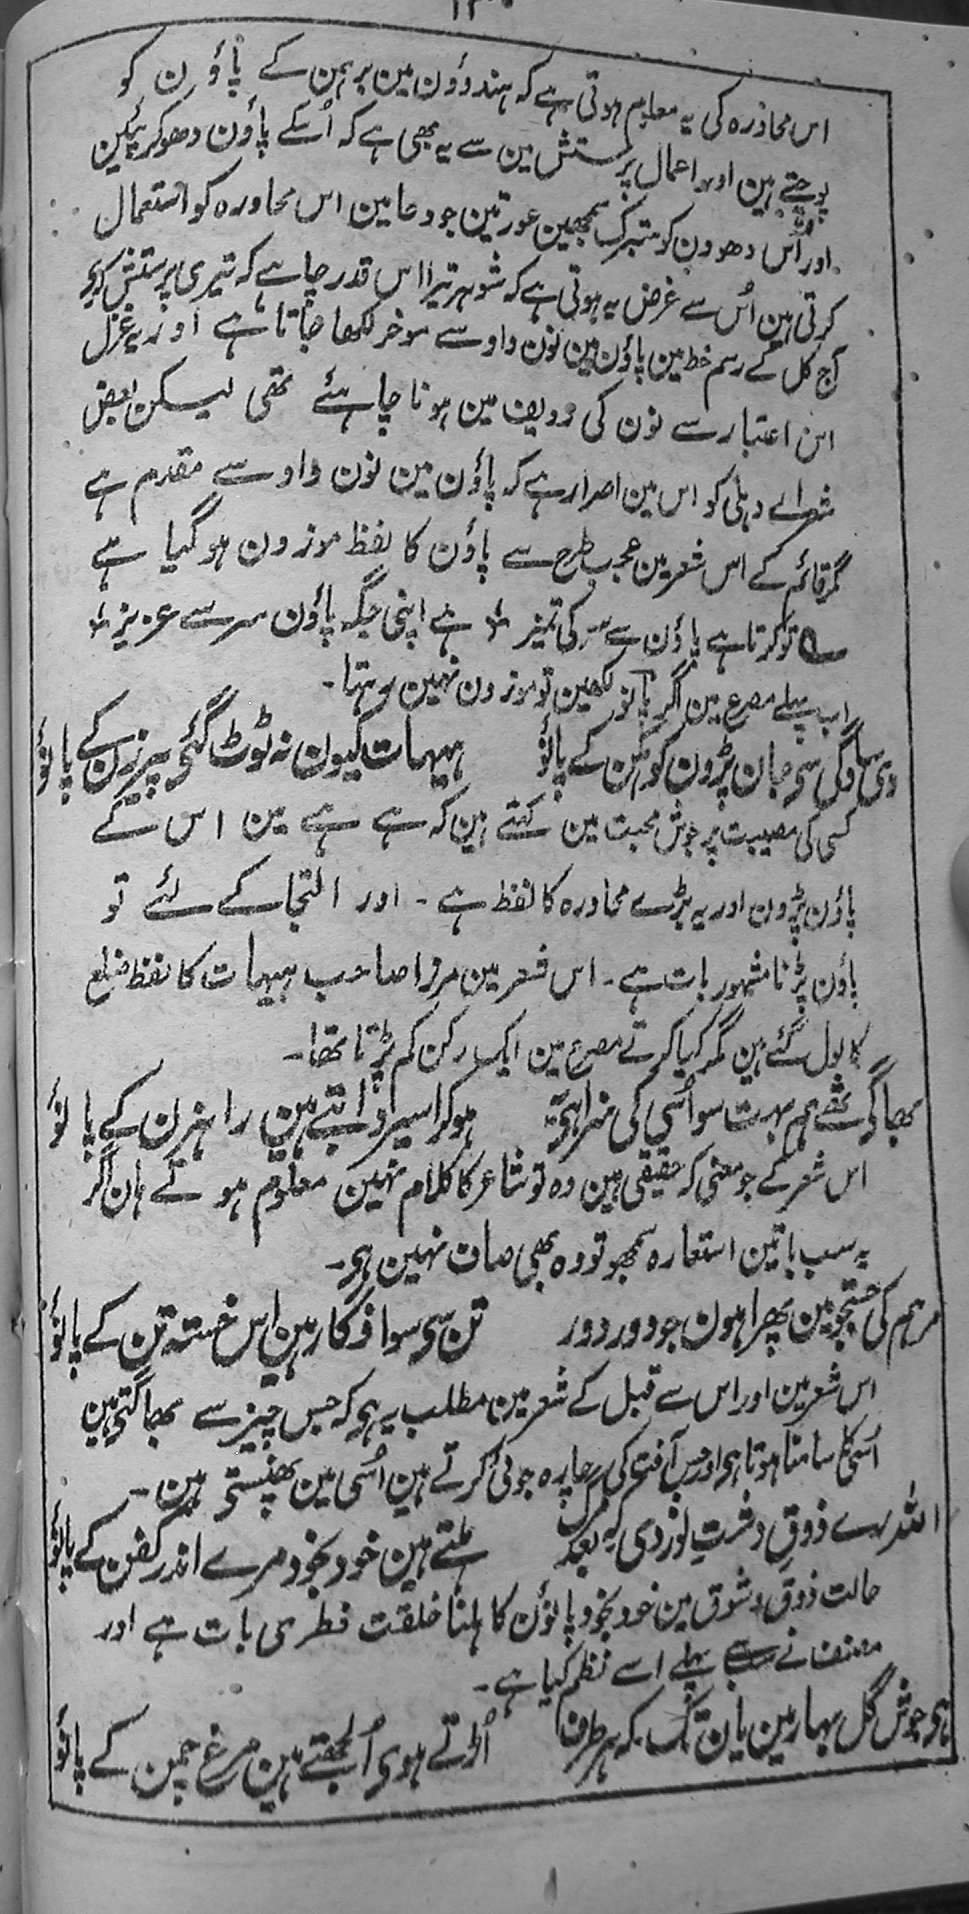 اس محاورہ کی یہ معلوم ہوتی ہے کہ ہندوؤن مین برہمن کے پاؤن کو
پوجتے ہین اور اعمال پرستش مین سے یہ بھی ہے کہ اُسکے پاؤن دھوکر پئین
اور اُس دھوون کو متبرک سمجھین عورتین جو دعا مین اس محاورہ کو استعمال
کرتی ہین اُس سے غرض یہ ہوتی ہے کہ شوہر تیرا اس قدر چاہے کہ تیری پرستش کرے
آج کل کے رسم خط مین پاؤن مین نون واو سے موخر لکھا جاتا ہے اور یہ غزل
اس اعتبار سے نون کی ردیف مین ہونا چاہئے تھی لیکن بعض
شعراے دہلی کو اس مین اصرار ہے کہ پاؤن مین نون واو سے مقدم ہے
مگر قائم کے اس شعر مین عجب طرح سے پاؤن کا لفظ موزون ہو گیا ہے
؎ تو کرتا ہے پاؤن سے سر کی تمیز ؎ ہے اپنی جگہ پاؤن سر سے عزیز ؎
اب پہلے مصرع مین اگر پانو لکھین تو موزون نہین رہتا۔
دی سادگی سی جان پڑون کوہکن کے پانؤ ہیہات کیون نہ ٹوٹ گئی پیر زن کے پانؤ
کسی کی مصیبت پر جوش محبت مین کہتے ہین کہ ہے ہے مین اس کے
پاؤن پڑون اور یہ بڑے محاورہ کا لفظ ہے ۔ اور التجا کے لئے تو
پاؤن پڑنا مشہور بات ہے ۔ اس شعر مین مرزا صاحب ہیہات کا لفظ ضلع
کا بول گئے ہین مگر کیا کرتے مصرع مین ایک رکن کم پڑتا تھا۔
بھاگے تھے ہم بہت سو اُسی کی سزا ہی یہ ہوکر اسیر دابتے ہین راہزن کے پانؤ
اس شعر کے جو معنی کہ حقیقی ہین وہ تو شاعر کا کلام نہین معلوم ہوتے ہان اگر
یہ سب باتین استعارہ سمجھو تو وہ بھی صاف نہین ہی۔
مرہم کی جستجو مین پھرا ہون جو دور دور تن سی سوا فگار ہین اس خستہ تن کے پانؤ
اس شعر مین اور اس سے قبل کے شعر مین مطلب یہ ہی کہ جس چیز سے بھاگتی ہین
اُسیکا سامنا ہوتا ہی اور جس آفت کی چارہ جوئی کرتے ہین اُسی مین پھنستی ہین ۔
اللہ رے ذوقِ دشتِ نوردی کہ بعد مرگ ہلتے ہین خود بخود مرے اندر کفن کے پانؤ
حالت ذوق و شوق مین خود بخود پانؤن کا ہلنا خلقت فطری بات ہے اور
مصنف نے سب سے پہلے اسے نظم کیا ہے ۔
ہی جوش گل بہار مین یان تک کہ ہر طرف اُڑتے ہوی اُلجھتے ہین مرغ چمن کے پانؤ